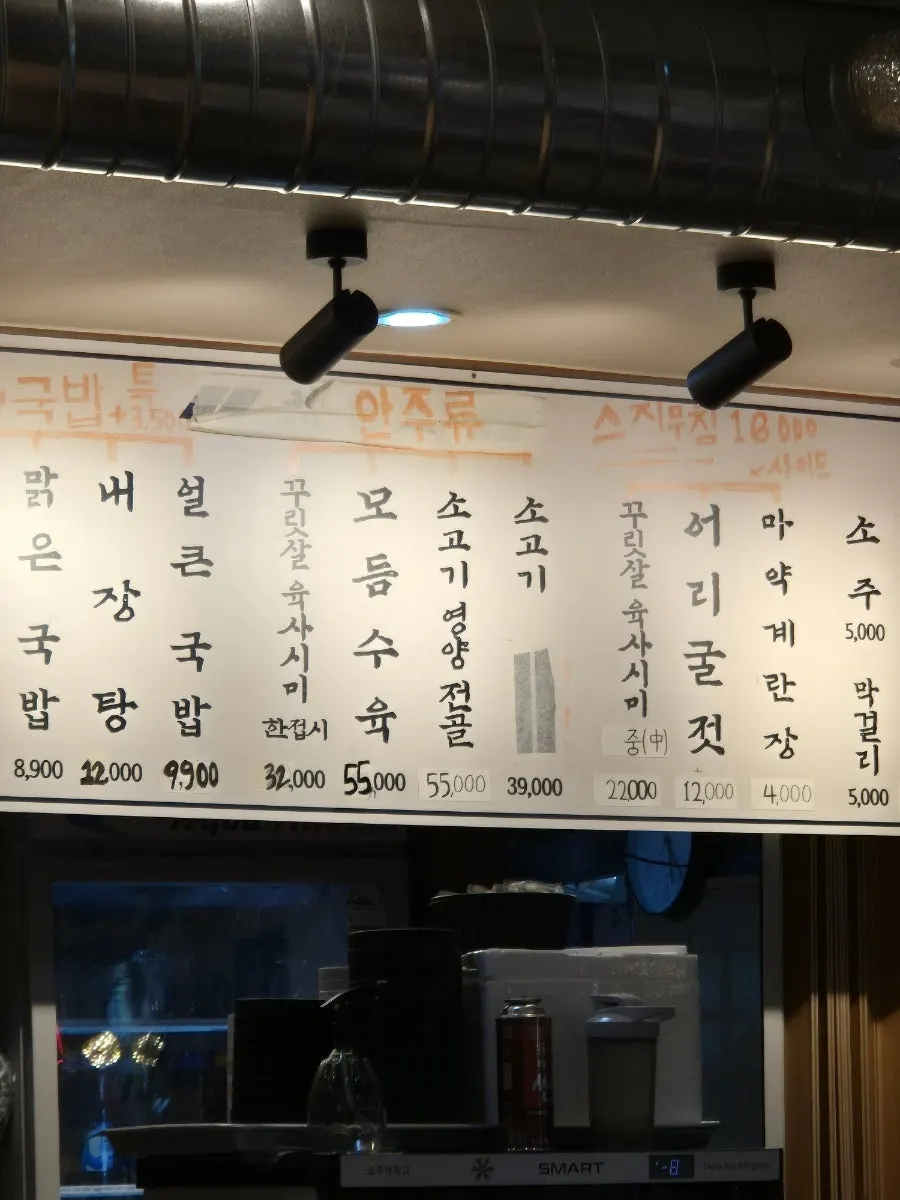 국밥 특
+3,500
맑은 국밥
8,900
내장탕
12,000
얼큰 국밥
9,900
안주류
꾸릿살 육사시미
한접시
32,000
모듬수육
55,000
소고기영양전골
55,000
소고기
39,000
스지무침 18000
사이드
꾸릿살 육사시미
중(中)
22,000
어리굴젓
12,000
마약계란장
4,000
소주
5,000
막걸리
5,000
SMART
-8